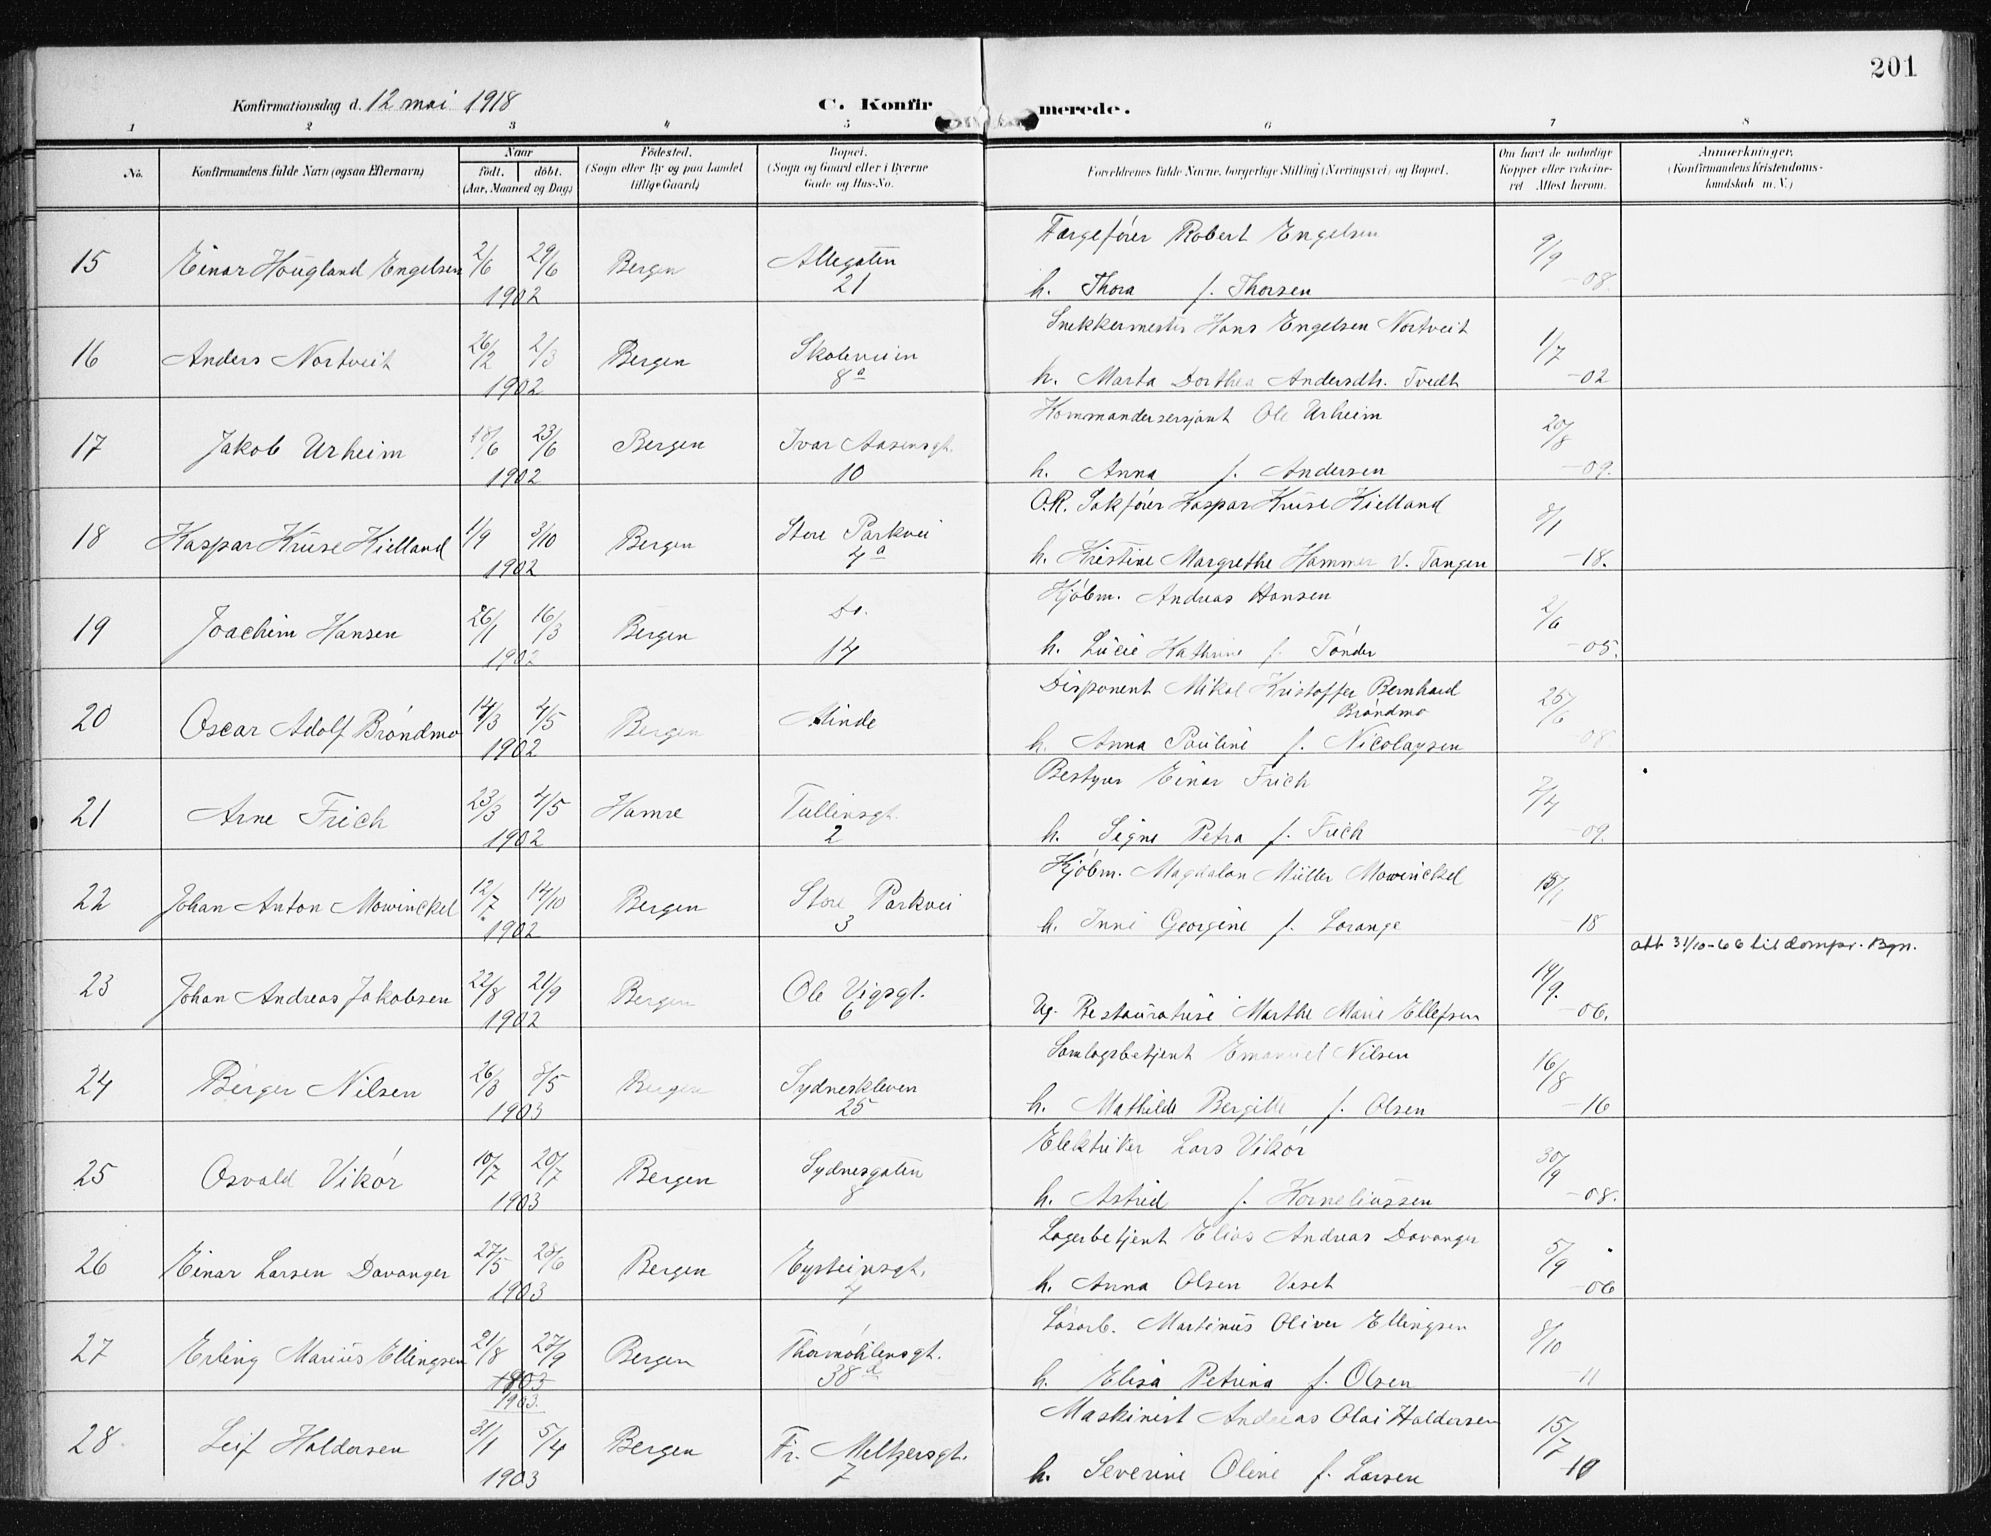 201
Konfirmationsdag d. 12 mai 1918
C. Konfirmerede.
1 2 3 4 5 6 7 8
No. Konfirmandens fulde Navn (ogsaa Efternavn) Naar født. døbt. (Aar, Maaned og Dag) Fødested. (Sogn eller By og paa Landet tillige Gaard) Bopæl. (Sogn og Gaard eller i Byerne Gade og Hus-No. Forældrenes fulde Navne, borgerlige Stilling (Næringsvei) og Bopæl. Om havt de naturlige Kopper eller vaccineret. Attest herom. Anmærkninger. (Konfirmandens Kristendomskundskab m. V.)
15 Einar Hougland Engelsen 2/6 29/6 1902 Bergen Allegaten 21 Færgefører Robert Engelsen h. Thora f. Thorsen 9/9 -08.
16 Anders Nortveit 26/2 2/3 1902 Bergen Skoleveien 8a Snekkermester Hans Engelsen Nortveit h. Marta Dorthea Andersdtr. Tvedt 1/7 -02
17 Jakob Urheim 18/6 23/6 1902 Bergen Ivar Aasensgt. 10 Kommandersersjant Ole Urheim h. Anna f. Andersen 20/8 -09.
18 Kaspar Kruse Kielland 1/9 3/10 1902 Bergen Store Parkvei 4a O.R. Sakfører Kaspar Kruse Kielland h. Kristine Margrethe Hammer v. Tangen 8/1 -18.
19 Joachim Hansen 26/1 16/3 1902 Bergen Do. 14 Kjøbm. Andreas Hansen h. Lucie Kathrine f. Tønder 2/6 -05.
20 Oscar Adolf Brøndmo 14/3 4/5 1902 Bergen Minde Disponent Mikal Kristoffer Bernhard Brøndmo h. Anna Pauline f. Nicolaysen 25/6 -08
21 Arne Frich 23/3 4/5 1902 Hamre Tullinsgt. 2 Bestyrer Einar Frich h. Signe Petra f. Frich 2/4 -09.
22 Johan Anton Mowinckel 12/7 14/10 1902 Bergen Store Parkvei 3 Kjøbm. Magdalon Müller Mowinckel h. Inni Georgine f. Lorange 15/1 -18
23 Johan Andreas Jakobsen 22/8 21/9 1902 Bergen Ole Vigsgt. 6 Ug. Restauratrise Marthe Marie Ellefsen 14/9. -06. att 31/10-66 til dompr. Bgn.
24 Birger Nilsen 26/3 8/5 1903 Bergen Sydneskleven 25 Samlagsbetjent Emanuel Nilsen h. Mathilde Bergitte f. Olsen 16/8 -16
25 Osvald Vikør 10/7 20/7 1903 Bergen Sydnesgaten 8 Elektriker Lars Vikør h. Astrid f. Korneliussen 30/9 -08.
26 Einar Larsen Davanger 27/5 28/6 1903 Bergen Eysteinsgt. 4 Lagerbetjent Elias Andreas Davanger h. Anna Olsen Veset 5/9 -06
27 Erling Marius Ellingsen 21/8 27/9 1903 1903. Bergen Thormøhlensgt. 38d Løsarb. Martinus Oliver Ellingsen h. Elisa Petrina f. Olsen 8/10 -11
28. Leif Haldorsen 31/1 5/4 1903 Bergen Fr. Meltzersgt. 7 Maskinist Andreas Olai Haldorsen h. Severine Oline f. Larsen 15/7 -10